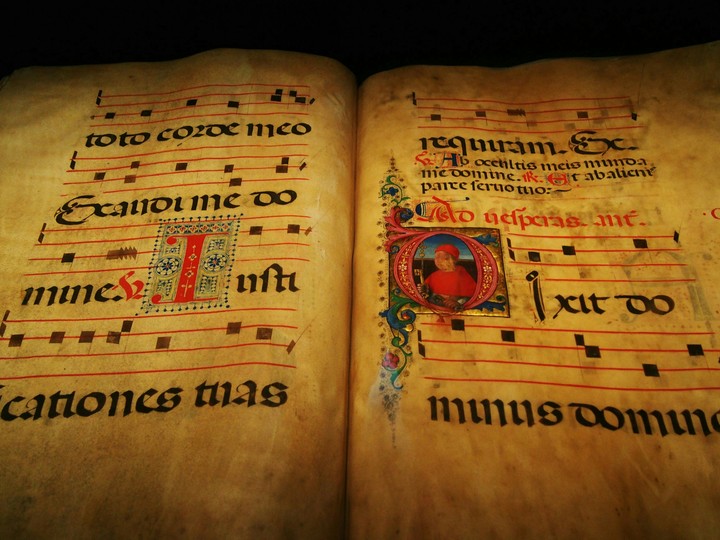 toto corde meo
Exaudi me do
mine. V. Iusti
ficationes tuas
requiram. Ex.
V. Ab occultis meis munda
me domine. R. Et ab alienis
parce servo tuo:
Ad vesperas. ant.
Dixit do
minus domino